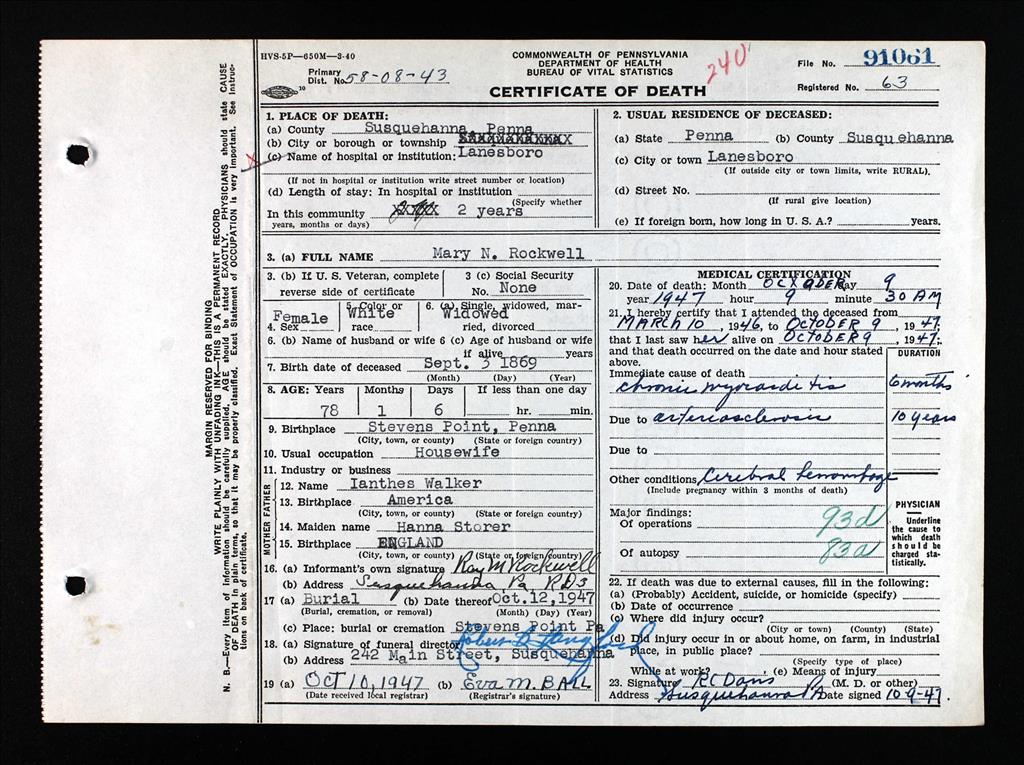 HVS-5P—650M—3-40
Primary Dist. No. 58-08-43
COMMONWEALTH OF PENNSYLVANIA
DEPARTMENT OF HEALTH
BUREAU OF VITAL STATISTICS
CERTIFICATE OF DEATH
240
File No. 91061
Registered No. 63
MARGIN RESERVED FOR BINDING
WRITE PLAINLY WITH UNFADING INK—THIS IS A PERMANENT RECORD
N. B.—Every item of information should be carefully supplied. AGE should be stated EXACTLY. PHYSICIANS should state CAUSE
OF DEATH in plain terms, so that it may be properly classified. Exact Statement of OCCUPATION is very important. See Instruc-
tions on back of certificate.
1. PLACE OF DEATH:
(a) County Susquehanna, Penna
(b) City or borough or township
(c) Name of hospital or institution: Lanesboro
(If not in hospital or institution write street number or location)
(d) Length of stay: In hospital or institution
(Specify whether
In this community 2 years
years, months or days)
2. USUAL RESIDENCE OF DECEASED:
(a) State Penna (b) County Susquehanna
(c) City or town Lanesboro
(If outside city or town limits, write RURAL).
(d) Street No.
(If rural give location)
(e) If foreign born, how long in U. S. A.? years.
3. (a) FULL NAME Mary N. Rockwell
3. (b) If U. S. Veteran, complete
reverse side of certificate
3 (c) Social Security
No. None
4. Sex Female
5. Color or
race White
6. (a) Single, widowed, mar-
ried, divorced Widowed
6. (b) Name of husband or wife 6 (c) Age of husband or wife
if alive years
7. Birth date of deceased Sept. 3 1869
(Month) (Day) (Year)
8. AGE: Years Months Days If less than one day
78 1 6 hr. min.
9. Birthplace Stevens Point, Penna
(City, town, or county) (State or foreign country)
10. Usual occupation Housewife
11. Industry or business
MOTHER FATHER
12. Name Ianthes Walker
13. Birthplace America
(City, town, or county) (State or foreign country)
14. Maiden name Hanna Storer
15. Birthplace ENGLAND
(City, town, or county) (State or foreign country)
16. (a) Informant's own signature Ray M Rockwell
(b) Address Susquehanna Pa RD3
17 (a) Burial (b) Date thereof Oct.12,1947
(Burial, cremation, or removal) (Month) (Day) (Year)
(c) Place: burial or cremation Stevens Point Pa
18. (a) Signature of funeral director
(b) Address 242 Main Street, Susquehanna
19 (a) OCT 10, 1947 (b) Eva M. BALL
(Date received local registrar) (Registrar's signature)
MEDICAL CERTIFICATION
20. Date of death: Month OCTOBER day 9
year 1947 hour 9 minute 30 AM
21. I hereby certify that I attended the deceased from
MARCH 10, 1946, to OCTOBER 9, 1947;
that I last saw her alive on OCTOBER 9, 1947;
and that death occurred on the date and hour stated
above.
DURATION
Immediate cause of death
chronic myocarditis 6 months
Due to arteriosclerosis 10 years
Due to
Other conditions Cerebral hemorrhage
(Include pregnancy within 3 months of death)
Major findings:
Of operations 93d
Of autopsy 83a
PHYSICIAN
Underline
the cause to
which death
should be
charged sta-
tistically.
22. If death was due to external causes, fill in the following:
(a) (Probably) Accident, suicide, or homicide (specify)
(b) Date of occurrence
(c) Where did injury occur?
(City or town) (County) (State)
(d) Did injury occur in or about home, on farm, in industrial
place, in public place?
(Specify type of place)
While at work? (e) Means of injury
23. Signature RC Davis (M. D. or other)
Address Susquehanna PA Date signed 10-9-47.